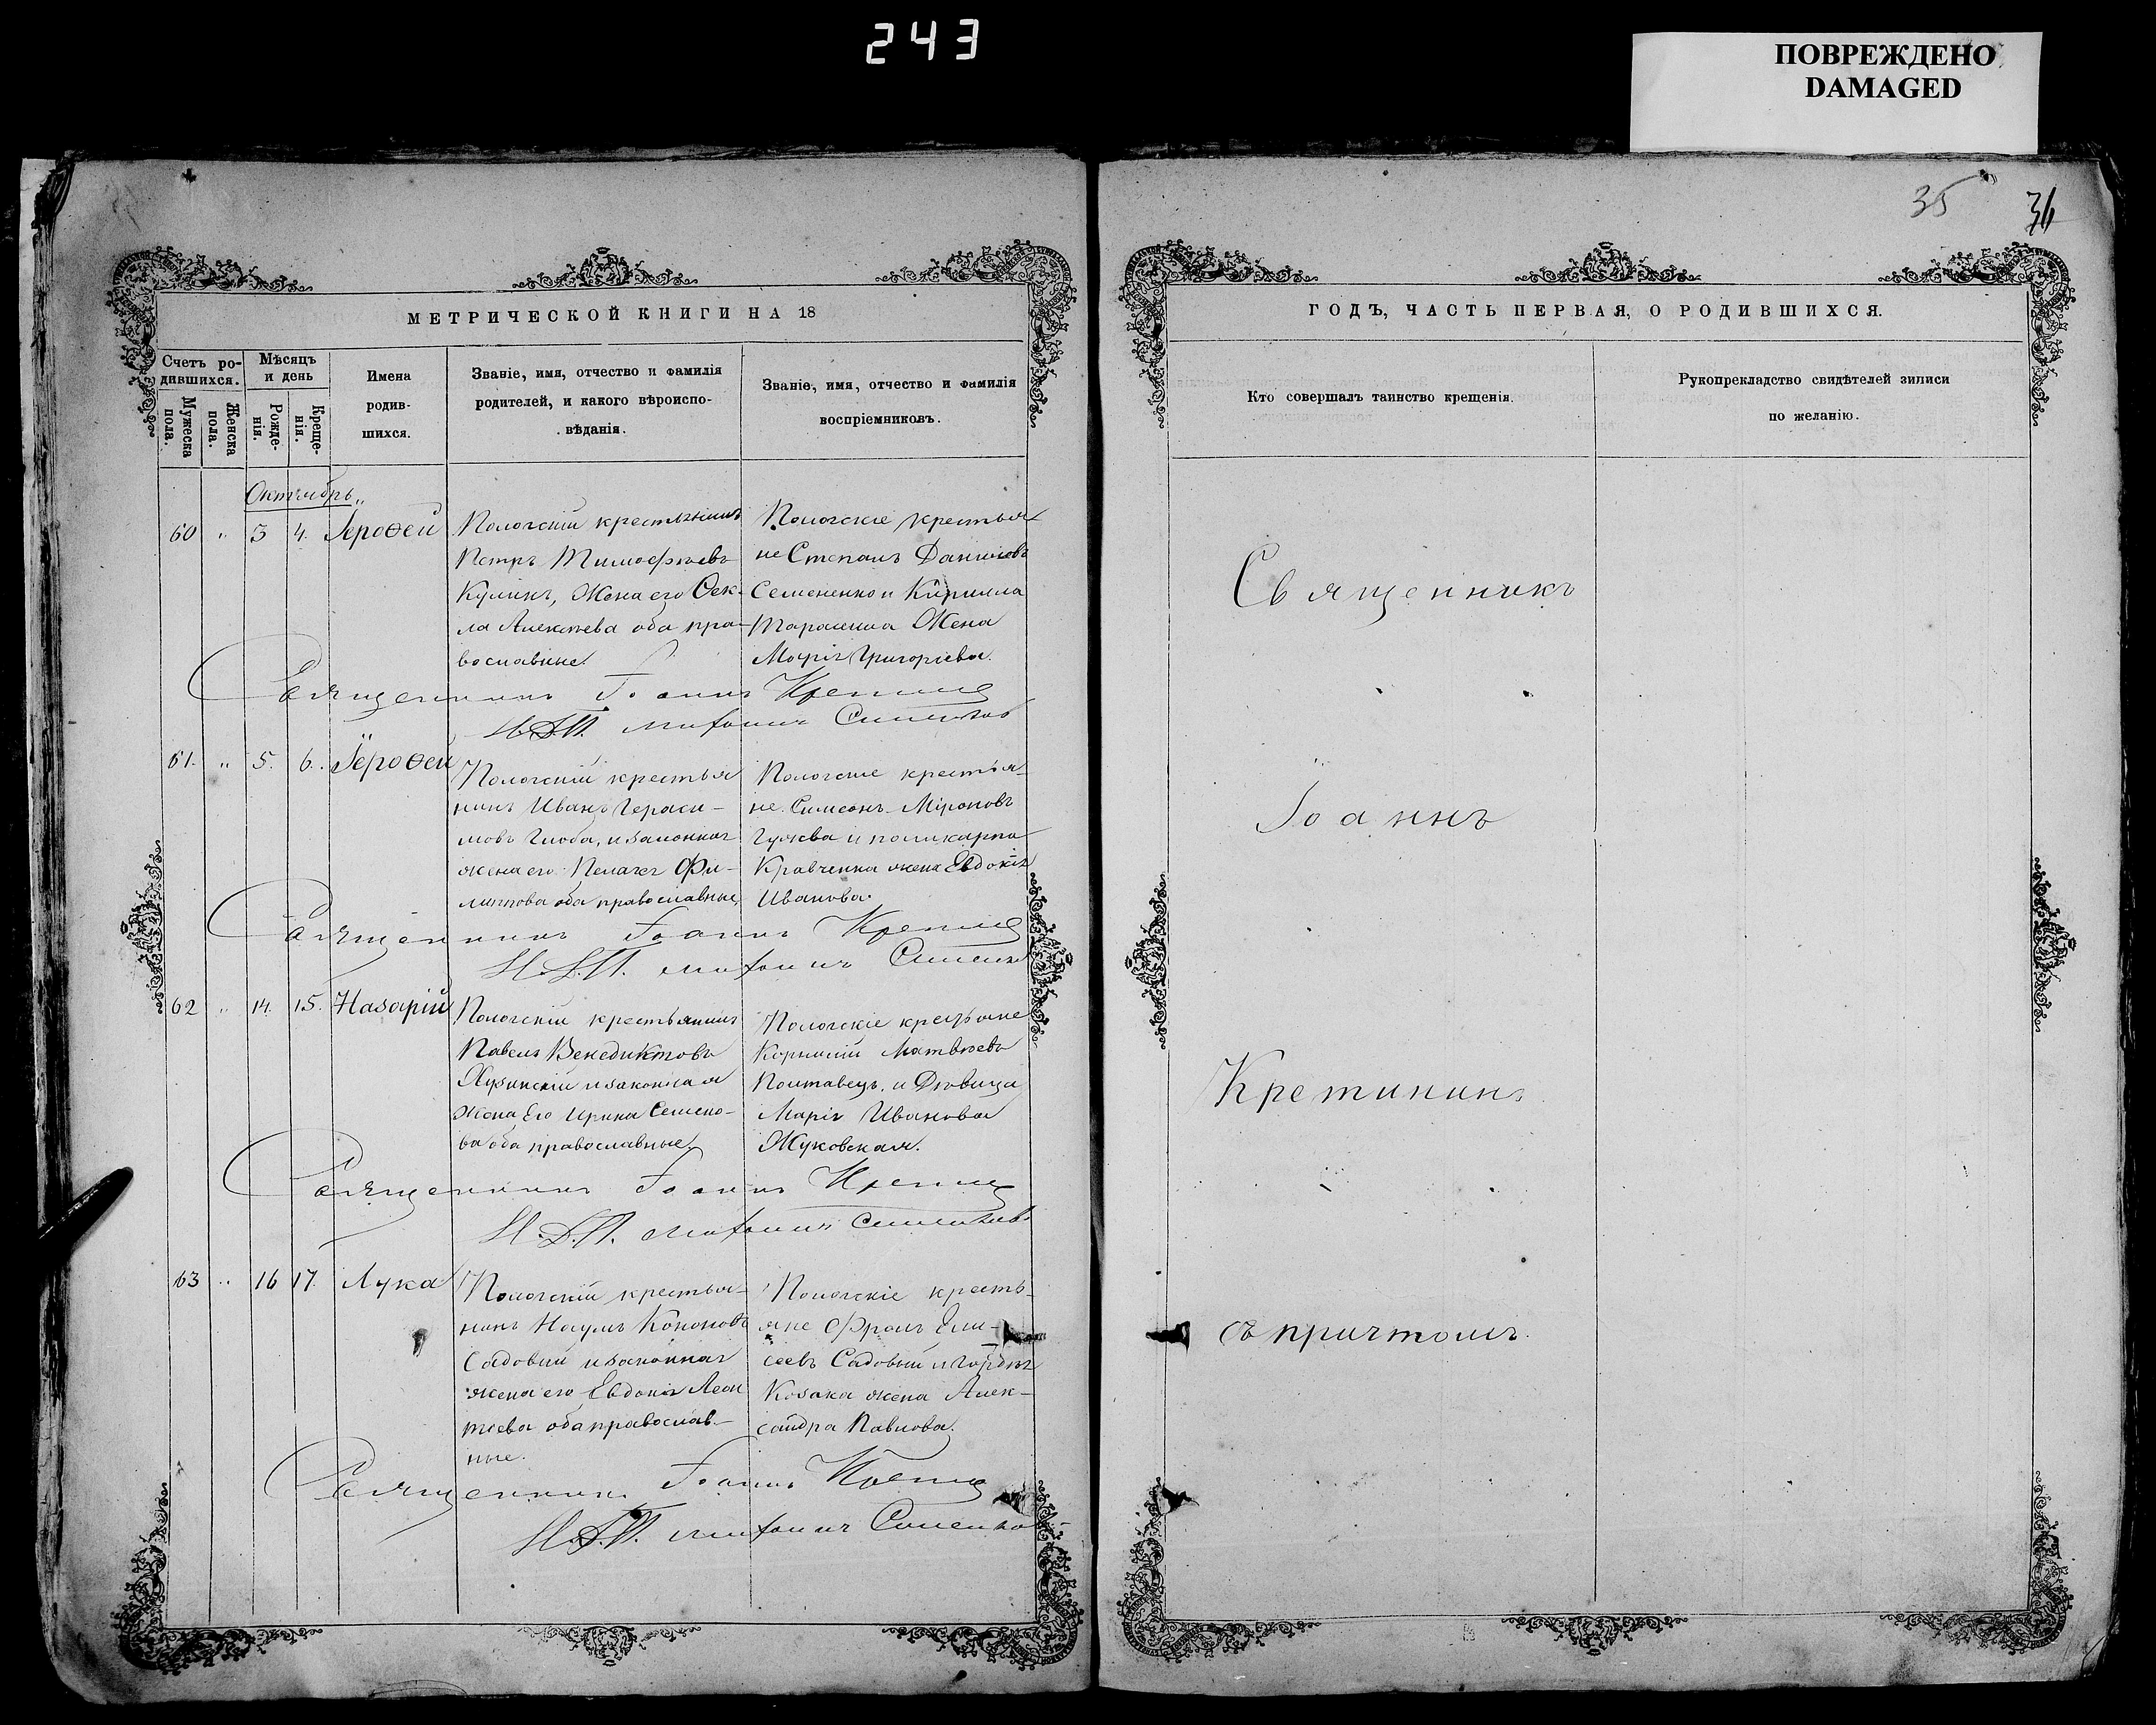 243
ПОВРЕЖДЕНО
DAMAGED
35
36
МЕТРИЧЕСКОЙ КНИГИ НА 18
Счетъ ро-
дившихся.
Мужеска пола.
Женска пола.
Мѣсяцъ
и день
Рожде-
нія.
Креще-
нія.
Имена
родив-
шихся.
Званіе, имя, отчество и фамилія
родителей, и какого вѣроиспо-
вѣданія.
Званіе, имя, отчество и фамилія
воспріемниковъ.
Октябрь
60 " 3 4. Іероѳей
Пологскій крестьянинъ
Петръ Тимофѣевъ
Куликъ, Жена его Ѳек-
ла Алексѣева оба пра-
вославные.
Пологскіе крестья
не Степанъ Даниловъ
Семененко и Кирилла
Жена
Марія Григоріева.
Священникъ Іоаннъ
61. " 5. 6. Іероѳей
Пологскій крестья
нинъ Иванъ Гераси-
мовъ Глоба, и законная
жена его Пелагея Фи-
липпова оба православные,
Пологскіе крестья-
не Симеонъ Міроновъ
Гужва и поликарпа
Кравченка жена Евдокія
Иванова.
Священникъ Іоаннъ
62 " 14. 15. Назарій
Пологскій крестьянинъ
Павелъ Венедиктовъ
и законная
жена Его Ирина Семено-
ва оба православные.
Пологскіе крестьяне
Корнилій Матвѣевъ
Полтавецъ, и Дѣвица
Марія Иванова
Жуковская.
Священникъ Іоаннъ
63 " 16 17. Лука
Пологскій крестья-
нинъ Наумъ Кононовъ
Садовый и законная
жена его Евдокія Леон
тьева оба православ-
ные.
Пологскіе кресть-
яне Фролъ Ели-
сеевъ Садовый и Гордѣя
Козака жена Алек-
сандра Павлова.
Священникъ Іоаннъ
ГОДЪ, ЧАСТЬ ПЕРВАЯ, О РОДИВШИХСЯ.
Кто совершалъ таинство крещенія.
Рукоприкладство свидѣтелей записи
по желанію.
Священникъ
Іоаннъ
Кретининъ
съ причтомъ.